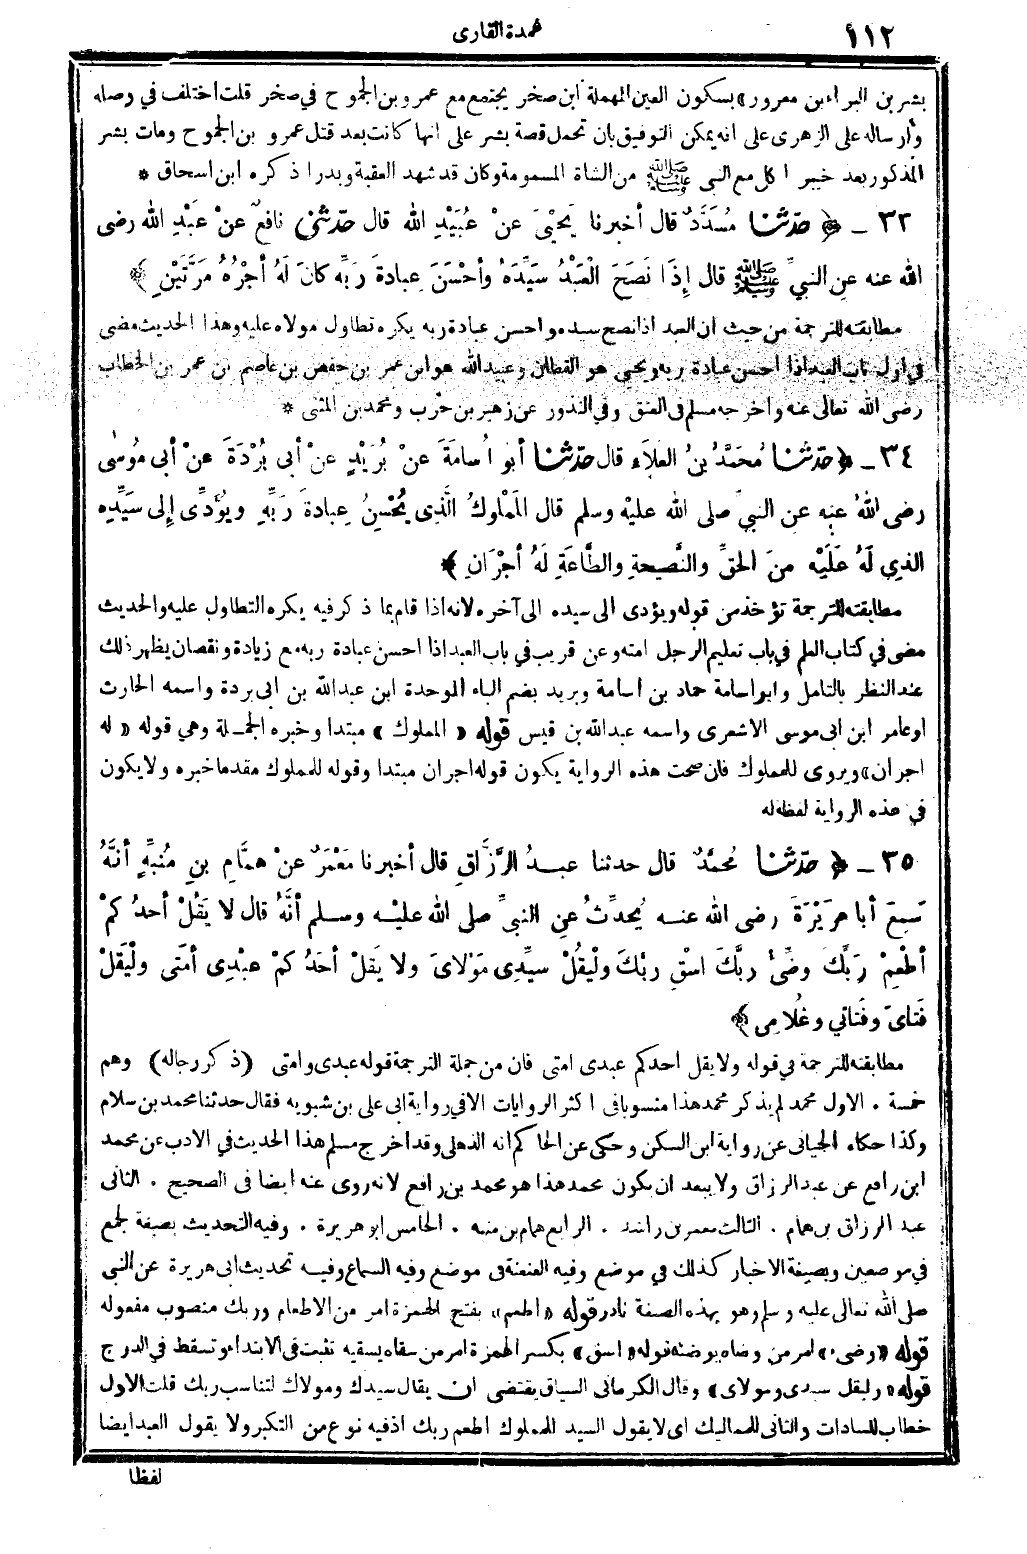 ١١٢
عمدة القارى
بشر بن البراء بن معرور» بسكون العين المهملة ابن صخر يجتمع مع عمرو بن الجموح في صخر قلت اختلف في وصله
وارساله على الزهرى على انه يمكن التوفيق بان تحمل قصة بشر على انها كانت بعد قتل عمرو بن الجموح ومات بشر
المذكور بعد خيبر اكل مع النبي ﷺ من الشاة المسمومة وكان قد شهد العقبة وبدرا ذكره ابن اسحاق *
٣٣ ـ ﴿ حدّثنا مُسَدَّدٌ قال أخبرنا يَحْيَى عنْ عُبَيْدِ الله قال حدّثني نافعٌ عنْ عَبْدِ الله رضى
الله عنه عنِ النبيِّ ﷺ قال إذَا نَصَحَ الْعَبْدُ سَيِّدَهُ وأحْسَنَ عِبادةَ رَبِّهِ كانَ لَهُ أجْرُهُ مَرَّتَيْنِ ﴾
مطابقته للترجمة من حيث ان العبد اذا نصح سيده واحسن عبادة ربه يكره تطاول مولاه عليه وهذا الحديث مضى
في اول باب العبد اذا احسن عبادة ربه ويحيى هو القطان وعبيدالله هو ابن عمر بن حفص بن عاصم بن عمر بن الخطاب
رضى الله تعالى عنه واخرجه مسلم في العتق وفي النذور عن زهير بن حرب ومحمد بن المثنى *
٣٤ ـ ﴿ حدّثنا مُحَمَّدُ بنُ العَلاَءِ قال حدّثنا أبو أُسامَةَ عنْ بُرَيْدٍ عنْ أبي بُرْدَةَ عنْ أبي مُوسَى
رضى اللهُ عنه عنِ النبيِّ صلى الله عليه وسلم قال المَمْلوكُ الَّذِي يُحْسِنُ عِبادةَ رَبِّهِ ويُؤَدِّى إلى سَيِّدِهِ
الذِي لَهُ عَلَيْهِ منَ الحقِّ والنَّصيحةِ والطَّاعَةِ لَهُ أجْرَانِ ﴾
مطابقته للترجمة تؤخذ من قوله ويؤدى الى سيده الى آخره لانه اذا قام بما ذكر فيه يكره التطاول عليه والحديث
مضى في كتاب العلم في باب تعليم الرجل امته وعن قريب في باب العبد اذا احسن عبادة ربه مع زيادة ونقصان يظهر ذلك
عند النظر بالتامل وابو اسامة حماد بن اسامة وبريد بضم الباء الموحدة ابن عبدالله بن ابى بردة واسمه الحارث
او عامر ابن ابى موسى الاشعرى واسمه عبدالله بن قيس قوله « المملوك » مبتدا وخبره الجملة وهي قوله « له
اجران» ويروى للمملوك فان صحت هذه الرواية يكون قوله اجران مبتدا وقوله للمملوك مقدما خبره ولا يكون
في هذه الرواية لفظه له
٣٥ ـ ﴿ حدّثنا مُحمَّدٌ قال حدثنا عبدُ الرَّزَّاقِ قال أخبرنا مَعْمَرٌ عنْ همَّامِ بنِ مُنَبِّهٍ أنَّهُ
سَمِعَ أبا هريْرَةَ رضى الله عنه يُحدِّثُ عنِ النبيِّ صلى الله عليه وسلم أنَّهُ قال لا يَقُلْ أحدُكمْ
أطْعِمْ رَبَّكَ وضِّئْ ربَّكَ اسْقِ ربَّكَ ولْيَقُلْ سيِّدِى مَوْلاىَ ولا يَقلْ أحَدُكمْ عبْدِى أمَتى ولْيَقلْ
فَتاىَ وفَتاتي وغُلامِى ﴾
مطابقته للترجمة في قوله ولا يقل احدكم عبدى امتى فان من جملة الترجمة قوله عبدى وامتى (ذكر رجاله) وهم
خمسة . الاول محمد لم يذكر محمد هذا منسوبا فى اكثر الروايات الا في رواية ابى على بن شبويه فقال حدثنا محمد بن سلام
وكذا حكاه الجياني عن رواية ابن السكن وحكى عن الحاكم انه الذهلى وقد اخرج مسلم هذا الحديث في الادب عن محمد
ابن رافع عن عبدالرزاق ولا يبعد ان يكون محمد هذا هو محمد بن رافع لانه روى عنه ايضا فى الصحيح . الثانى
عبد الرزاق بن همام . الثالث معمر بن راشد . الرابع همام بن منبه . الخامس ابو هريرة . وفيه التحديث بصيغة الجمع
في موضعين وبصيغة الاخبار كذلك في موضع وفيه العنعنة فى موضع وفيه السماع وفيه تحديث ابى هريرة عن النبى
صلى الله تعالى عليه وسلم وهو بهذه الصفة نادر قوله «اطعم» بفتح الهمزة امر من الاطعام وربك منصوب مفعوله
قوله «وضىء» امر من وضأه يوضئه قوله «اسق» بكسر الهمزة امر من سقاه يسقيه تثبت فى الابتداء وتسقط في الدرج
قوله «وليقل سيدى ومولاى» وقال الكرمانى السياق يقتضى ان يقال سيدك ومولاك لتناسب ربك قلت الاول
خطاب للسادات والثانى للمماليك اى لا يقول السيد للمملوك اطعم ربك اذ فيه نوع من التكبر ولا يقول العبد ايضا
لفظا